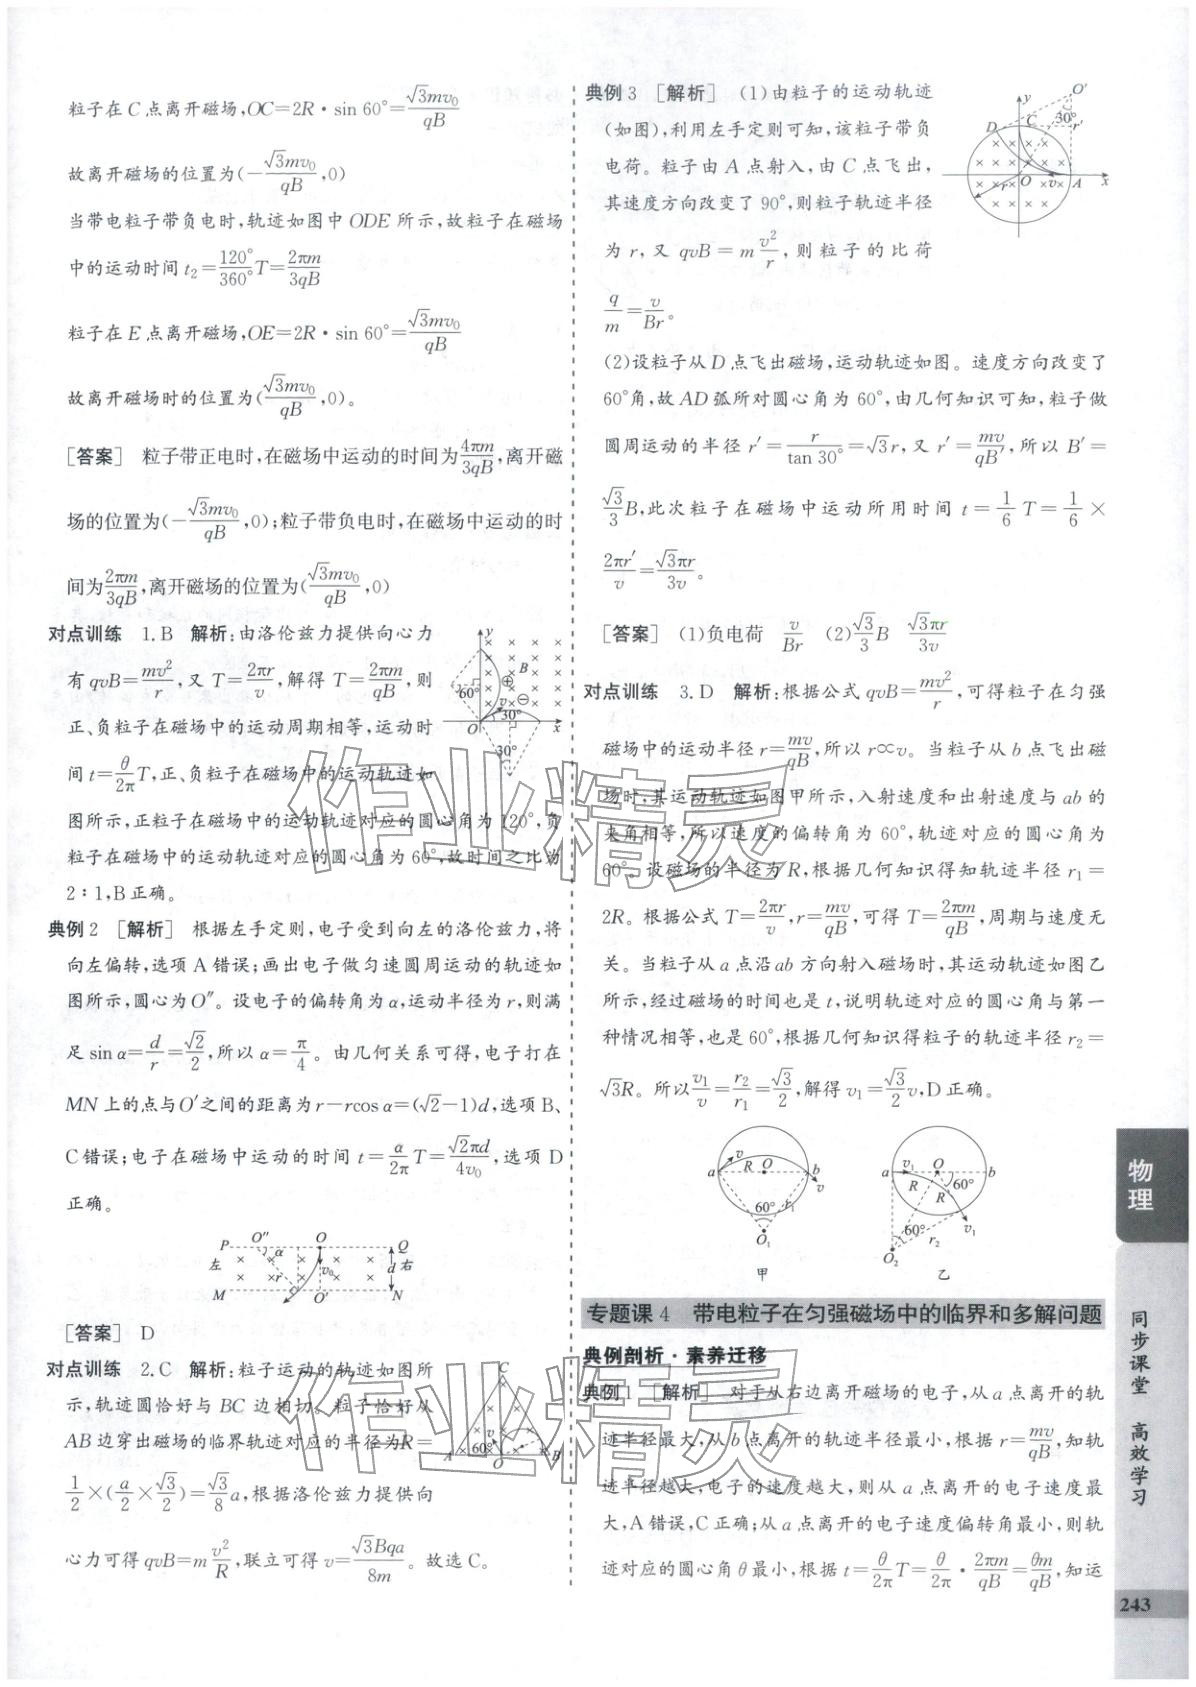 粒子在C点离开磁场,OC=2R·sin 60°=√3mv₀/qB
故离开磁场的位置为(-√3mv₀/qB,0)
当带电粒子带负电时,轨迹如图中ODE所示,故粒子在磁场
中的运动时间t₂=120°/360°T=2πm/3qB
粒子在E点离开磁场,OE=2R·sin 60°=√3mv₀/qB
故离开磁场时的位置为(√3mv₀/qB,0)。
[答案] 粒子带正电时,在磁场中运动的时间为4πm/3qB,离开磁
场的位置为(-√3mv₀/qB,0);粒子带负电时,在磁场中运动的时
间为2πm/3qB,离开磁场的位置为(√3mv₀/qB,0)
对点训练 1.B 解析:由洛伦兹力提供向心力
有qvB=mv²/r,又T=2πr/v,解得T=2πm/qB,则
正、负粒子在磁场中的运动周期相等,运动时
间t=θ/2πT,正、负粒子在磁场中的运动轨迹如
图所示,正粒子在磁场中的运动轨迹对应的圆心角为120°,负
粒子在磁场中的运动轨迹对应的圆心角为60°,故时间之比为
2∶1,B正确。
y
B
60°
v
30°
O
x
30°
典例2 [解析] 根据左手定则,电子受到向左的洛伦兹力,将
向左偏转,选项A错误;画出电子做匀速圆周运动的轨迹如
图所示,圆心为O″。设电子的偏转角为α,运动半径为r,则满
足sin α=d/r=√2/2,所以α=π/4。由几何关系可得,电子打在
MN上的点与O′之间的距离为r-rcos α=(√2-1)d,选项B、
C错误;电子在磁场中运动的时间t=α/2πT=√2πd/4v₀,选项D
正确。
P O″ O Q
左 α r v₀ d 右
M O′ N
[答案] D
对点训练 2.C 解析:粒子运动的轨迹如图所
示,轨迹圆恰好与BC边相切。粒子恰好从
AB边穿出磁场的临界轨迹对应的半径为R=
1/2×(a/2×√3/2)=√3/8a,根据洛伦兹力提供向
心力可得qvB=mv²/R,联立可得v=√3Bqa/8m。故选C。
C
v
60°
A O B
典例3 [解析] (1)由粒子的运动轨迹
(如图),利用左手定则可知,该粒子带负
电荷。粒子由A点射入,由C点飞出,
其速度方向改变了90°,则粒子轨迹半径
为r,又qvB=mv²/r,则粒子的比荷
q/m=v/Br。
y O′
D C 30° r′
r O v A x
(2)设粒子从D点飞出磁场,运动轨迹如图。速度方向改变了
60°角,故AD弧所对圆心角为60°,由几何知识可知,粒子做
圆周运动的半径r′=r/tan 30°=√3r,又r′=mv/qB′,所以B′=
√3/3B,此次粒子在磁场中运动所用时间t=1/6T=1/6×
2πr′/v=√3πr/3v。
[答案] (1)负电荷 v/Br (2)√3/3B √3πr/3v
对点训练 3.D 解析:根据公式qvB=mv²/r,可得粒子在匀强
磁场中的运动半径r=mv/qB,所以r∝v。当粒子从b点飞出磁
场时,其运动轨迹如图甲所示,入射速度和出射速度与ab的
夹角相等,所以速度的偏转角为60°,轨迹对应的圆心角为
60°。设磁场的半径为R,根据几何知识得知轨迹半径r₁=
2R。根据公式T=2πr/v,r=mv/qB,可得T=2πm/qB,周期与速度无
关。当粒子从a点沿ab方向射入磁场时,其运动轨迹如图乙
所示,经过磁场的时间也是t,说明轨迹对应的圆心角与第一
种情况相等,也是60°,根据几何知识得粒子的轨迹半径r₂=
√3R。所以v₁/v=r₂/r₁=√3/2,解得v₁=√3/2v,D正确。
v
a R O b
v
60° r₁
O₁
甲
v₁
a O b
R 60°
R
v₁
60° r₂
O₂
乙
专题课4 带电粒子在匀强磁场中的临界和多解问题
典例剖析·素养迁移
典例1 [解析] 对于从右边离开磁场的电子,从a点离开的轨
迹半径最大,从b点离开的轨迹半径最小,根据r=mv/qB,知轨
迹半径越大,电子的速度越大,则从a点离开的电子速度最
大,A错误,C正确;从a点离开的电子速度偏转角最小,则轨
迹对应的圆心角θ最小,根据t=θ/2πT=θ/2π·2πm/qB=θm/qB,知运
物理
同步课堂 高效学习
243
作业精灵
作业精灵